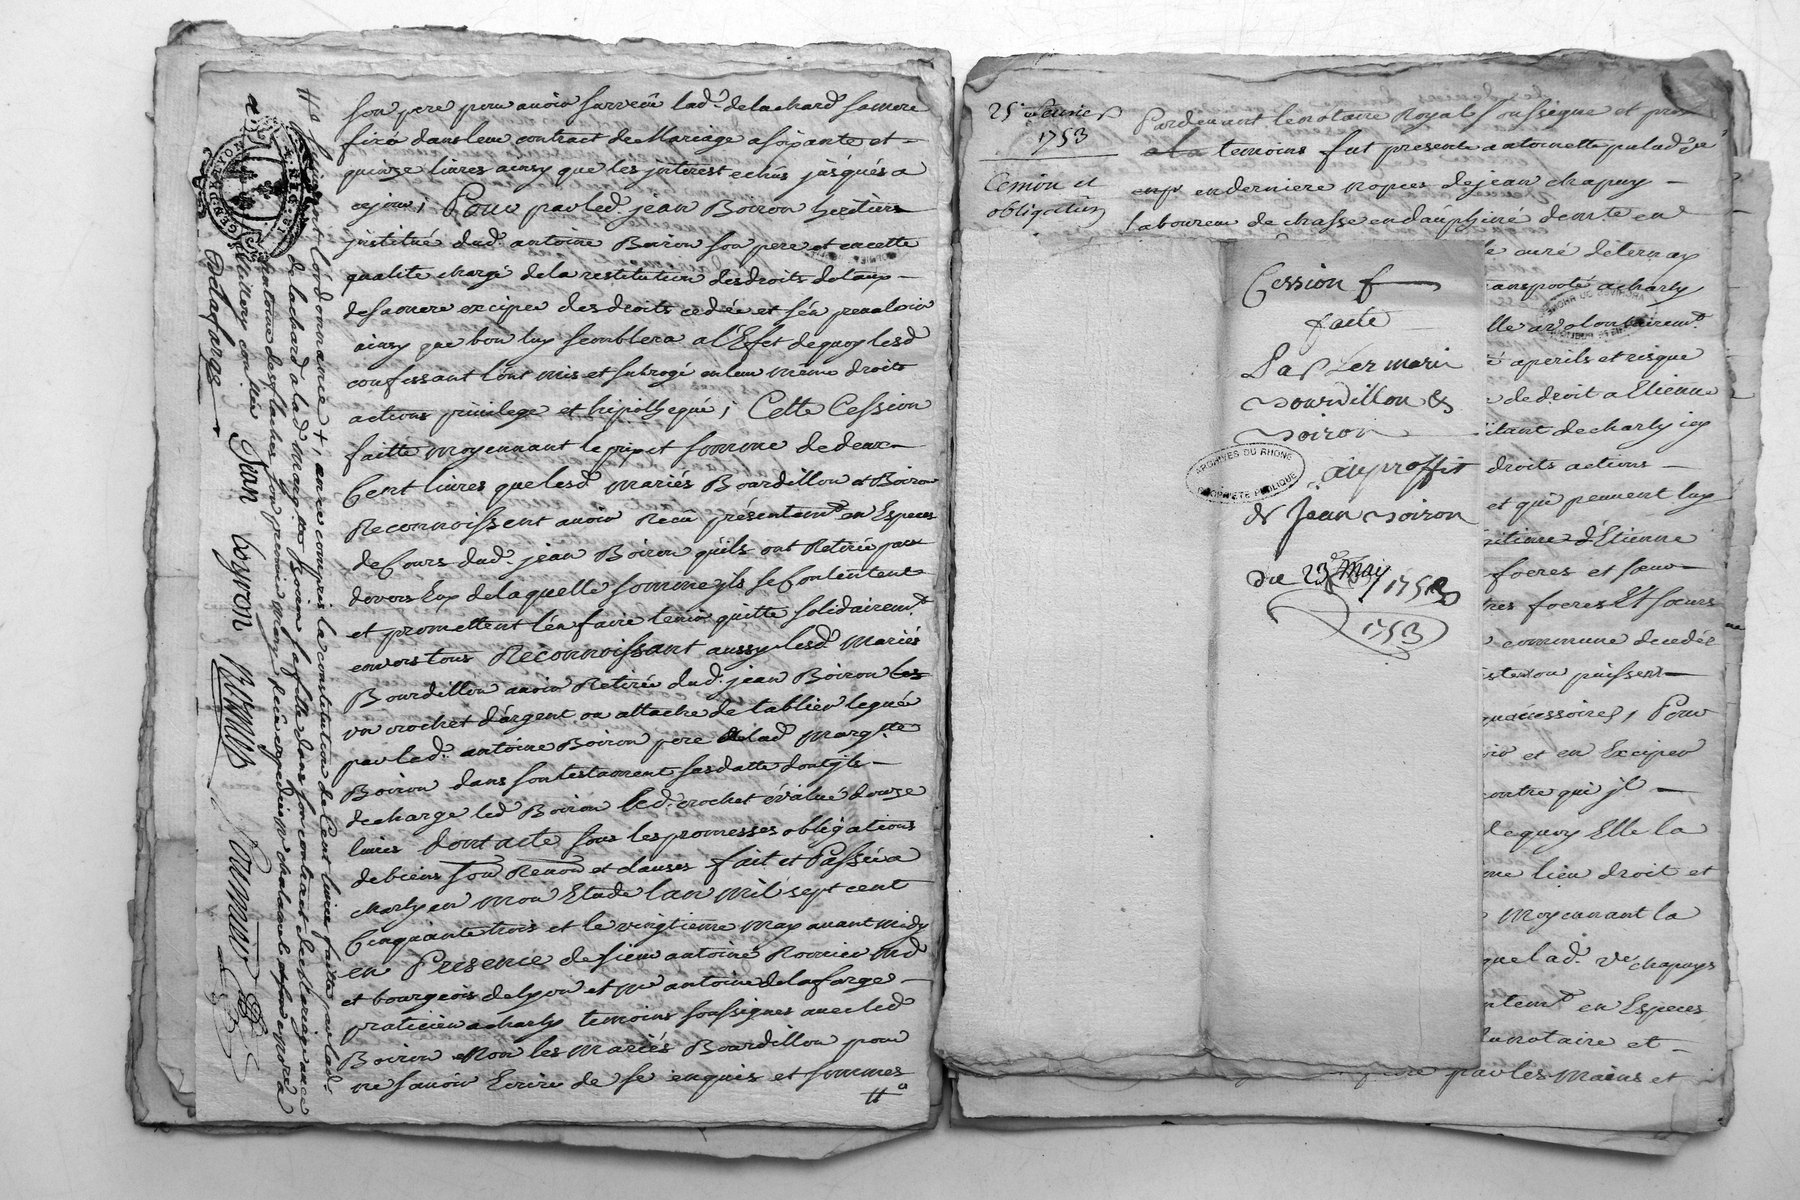 son pere pour avoir survecû lad. delachard sa mere
fixé dans leur contract de Mariage a soixante et -
quinze livres ainsy que les jnterest echus jusqués a
ce jour ; Pour par led. jean Boiron heritier
jnstitué dud. antoine Boiron son pere et en cette
qualité chargé de la restitution des droits dotaux -
de sa mere exciper des droits cedés et s'en prevaloir
ainsy que bon luy semblera a l'Effet de quoy lesd
confessant l'ont mis et subrogé en leur même droits
actions privilege et hipotheque ; Cette Cession
faitte moyennant le prix et somme de deux -
Cent livres que lesd mariés Bourdillon et Boiron
Reconnoissent avoir Recû présentemt en Especes
de Cours dud. jean Boiron qu'ils ont Retirée par
devers Eux de laquelle somme jls se Contentent
et promettent l'en faire tenir quitte solidairemt
envers tous Reconnoissant aussy lesd Mariés
Bourdillon avoir Retiré dud. jean Boiron les
un crochet d'argent ou attache de tablier legué
par led. antoine Boiron pere de lad Margte
Boiron dans son testament susdatté dont jls -
decharge led Boiron led. crochet évalué douze
livres Dont acte sous les promesses obligations
de biens sou Renon et clauses fait et Passé a
charly en mon Etude l'an mil sept cent
Cinquante trois et le vingtieme may avant midy
en Presence de sieur antoine Romier md
et bourgeois de Lyon et me antoine delafarge -
praticien a charly temoins soussignes avec led
Boiron Non les Mariés Bourdillon pour
ne savoir Ecrire de ce enquis et sommés
#
# suivant l'ordonnance +, en ce compris la constitution de Cent livres faitte par lad.
delachard a lad Margte Boiron sa fille dans son contract de Mariage avec
antoine desflaches son premier mary
Delafarge
Jean boyron
Romier
GENERALITE LYON
25 janvier
1753
Cession et
obligation
Pardevant le notaire Royal soussigné et presen
a la temoins fut presente antoinette
en derniere nopces de jean chapuy -
laboureur de chasse en dauphiné demte en
curé de lernay
ansporté a charly
lle a volontairemt
é a perils et risque
de droit a Etienne
itant de charly icy
droits actions -
et qui peuvent luy
d'Etienne
freres et sœur
tres freres Et sœurs
commune decedée
ou puissent -
accessoires, Pour
oir et en Exciper
contre qui jl -
de quoy Elle la
me lieu droit et
Moyennant la
que lad. ve chapuys
ntemt en Especes
du notaire et -
par les mains et
Cession
faite
Par Les marié
Bourdillon &
Boiron
au proffit
de Jean Boiron
du 23 May
1753
ARCHIVES DU RHONE
PROPRIETE PUBLIQUE